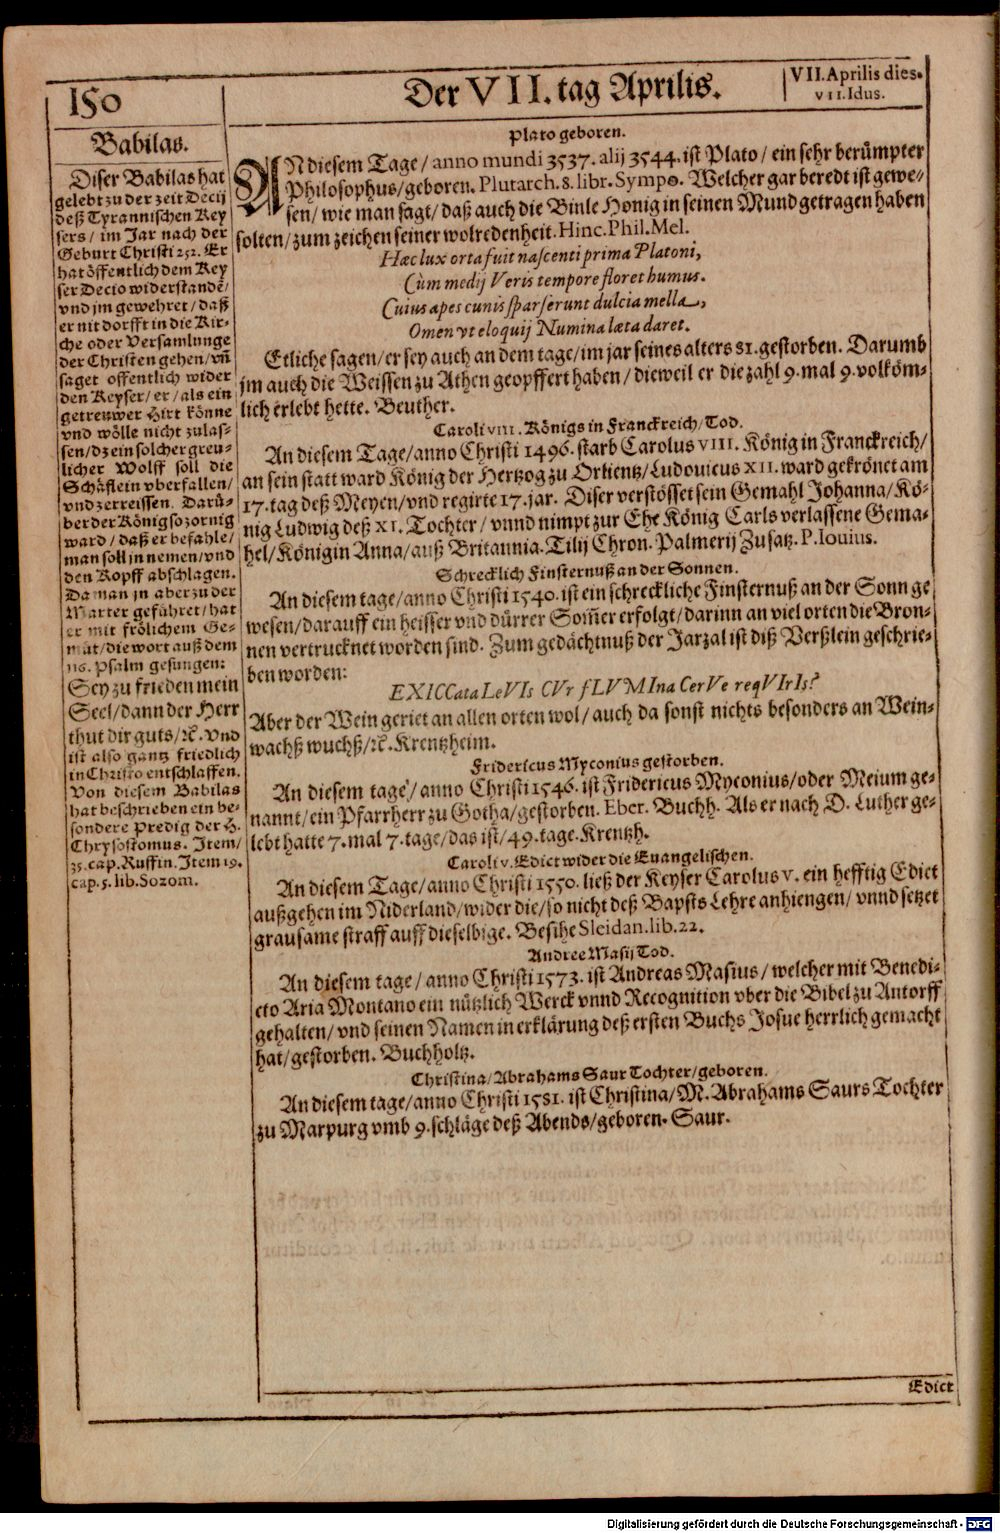 150
Der VII. tag Aprilis.
VII. Aprilis dies.
VII. Idus.
Babilas.
Diser Babilas hat
gelebt zu der zeit Decij
deß Tyrannischen Key
sers / im Jar nach der
Geburt Christi 252. Er
hat öffentlich dem Key
ser Decio widerstandẽ /
vnd jm gewehret / daß
er nit dorfft in die Kir-
che oder Versamlunge
der Christen gehen / vñ
saget offentlich wider
den Keyser / er / als ein
getreuwer Hirt könne
vnd wölle nicht zulas-
sen / dz ein solcher greu-
licher Wolff soll die
Schäflein vberfallen /
vnd zerreissen. Darü-
ber der König so zornig
ward / daß er befahle /
man soll jn nemen / vnd
den Kopff abschlagen.
Da man jn aber zu der
Marter geführet / hat
er mit frölichem Ge-
müt / die wort auß dem
116. Psalm gesungen:
Sey zu frieden mein
Seel / dann der Herr
thut dir guts / ꝛc. Vnd
ist also gantz friedlich
in Christo entschlaffen.
Von diesem Babilas
hat beschrieben ein be-
sondere Predig der H.
Chrysostomus. Item /
35. cap. Ruffin. Item 19.
cap. 5. lib. Sozom.
Plato geboren.
AN diesem Tage / anno mundi 3537. alij 3544. ist Plato / ein sehr berümpter
Philosophus / geboren. Plutarch. 8. libr. Sympo. Welcher gar beredt ist gewe-
sen / wie man sagt / daß auch die Binle Honig in seinen Mund getragen haben
solten / zum zeichen seiner wolredenheit. Hinc. Phil. Mel.
Hæc lux orta fuit nascenti prima Platoni,
Cùm medij Veris tempore floret humus.
Cuius apes cunis sparserunt dulcia mella,
Omen vt eloquij Numina læta daret.
Etliche sagen / er sey auch an dem tage / im jar seines alters 81. gestorben. Darumb
jm auch die Weissen zu Athen geopffert haben / dieweil er die zahl 9. mal 9. volköm-
lich erlebt hette. Beuther.
Caroli VIII. Königs in Franckreich / Tod.
An diesem Tage / anno Christi 1496. starb Carolus VIII. König in Franckreich /
an sein statt ward König der Hertzog zu Orlientz / Ludouicus XII. ward gekrönet am
17. tag deß Meyen / vnd regirte 17. jar. Diser verstösset sein Gemahl Johanna / Kö-
nig Ludwig deß XI. Tochter / vnnd nimpt zur Ehe König Carls verlassene Gema-
hel / Königin Anna / auß Britannia. Tilij Chron. Palmerij Zusatz. P. Iouius.
Schrecklich Finsternuß an der Sonnen.
An diesem tage / anno Christi 1540. ist ein schreckliche Finsternuß an der Sonn ge
wesen / darauff ein heisser vnd dürrer Som̃er erfolgt / darinn an viel orten die Bron-
nen vertrucknet worden sind. Zum gedächtnuß der Jarzal ist diß Verßlein geschrie-
ben worden:
EXICCata LeVIs CVr fLVMIna CerVe reqVIrIs?
Aber der Wein geriet an allen orten wol / auch da sonst nichts besonders an Wein-
wachß wuchß / ꝛc. Krentzheim.
Fridericus Myconius gestorben.
An diesem tage / anno Christi 1546. ist Fridericus Myconius / oder Meium ge-
nannt / ein Pfarrherr zu Gotha / gestorben. Eber. Buchh. Als er nach D. Luther ge-
lebt hatte 7. mal 7. tage / das ist / 49. tage. Krentzh.
Caroli V. Edict wider die Euangelischen.
An diesem Tage / anno Christi 1550. ließ der Keyser Carolus V. ein hefftig Edict
außgehen im Niderland / wider die / so nicht deß Bapsts Lehre anhiengen / vnnd setzet
grausame straff auff dieselbige. Besihe Sleidan. lib. 22.
Andree Masij Tod.
An diesem tage / anno Christi 1573. ist Andreas Masius / welcher mit Benedi-
cto Aria Montano ein nützlich Werck vnnd Recognition vber die Bibel zu Antorff
gehalten / vnd seinen Namen in erklärung deß ersten Buchs Josue herrlich gemacht
hat / gestorben. Buchholtz.
Christina / Abrahams Saur Tochter / geboren.
An diesem tage / anno Christi 1581. ist Christina / M. Abrahams Saurs Tochter
zu Marpurg vmb 9. schläge deß Abends / geboren. Saur.
Edict
Digitalisierung gefördert durch die Deutsche Forschungsgemeinschaft - DFG